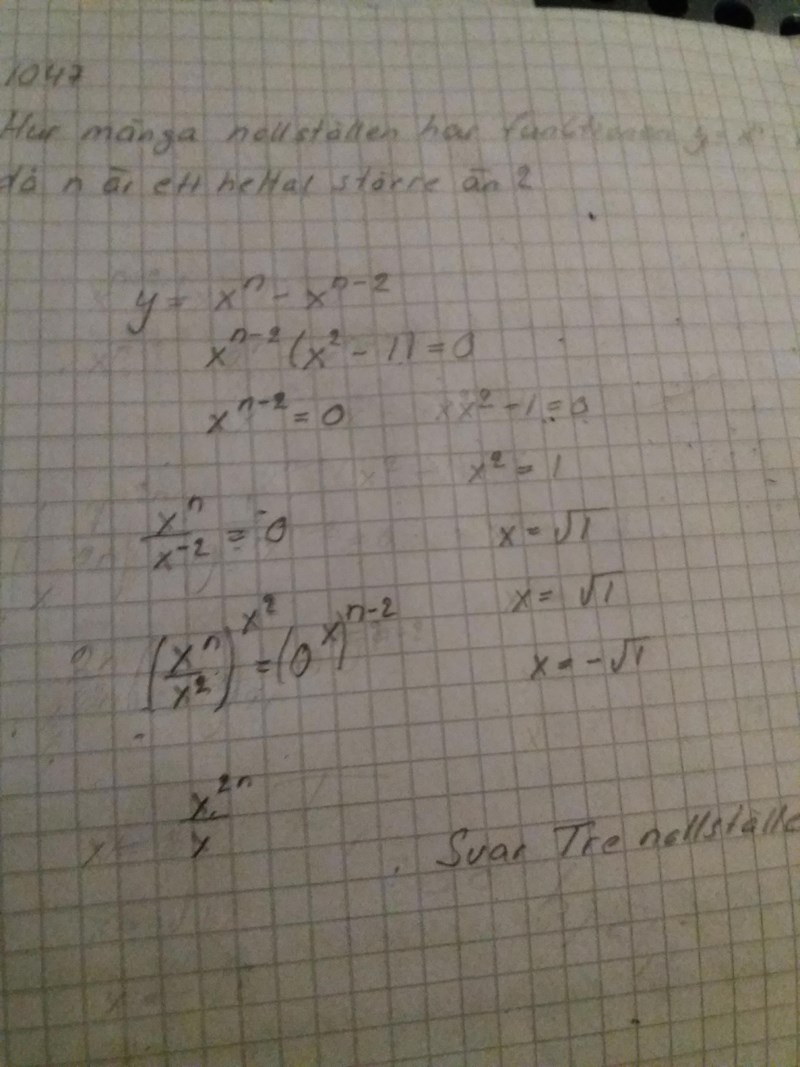 1047
Hur många nollställen har funktionen y = x
då n är ett heltal större än 2
y = x^n - x^{n-2}
x^{n-2} (x^2 - 1) = 0
x^{n-2} = 0    x^2 - 1 = 0
x^2 = 1
x^n / x^{-2} = 0    x = √1
x = √1
(x^n / x^2)^{x^2} = (0^x)^{n-2}    x = -√1
x^{2n} / x
Svar Tre nollställe